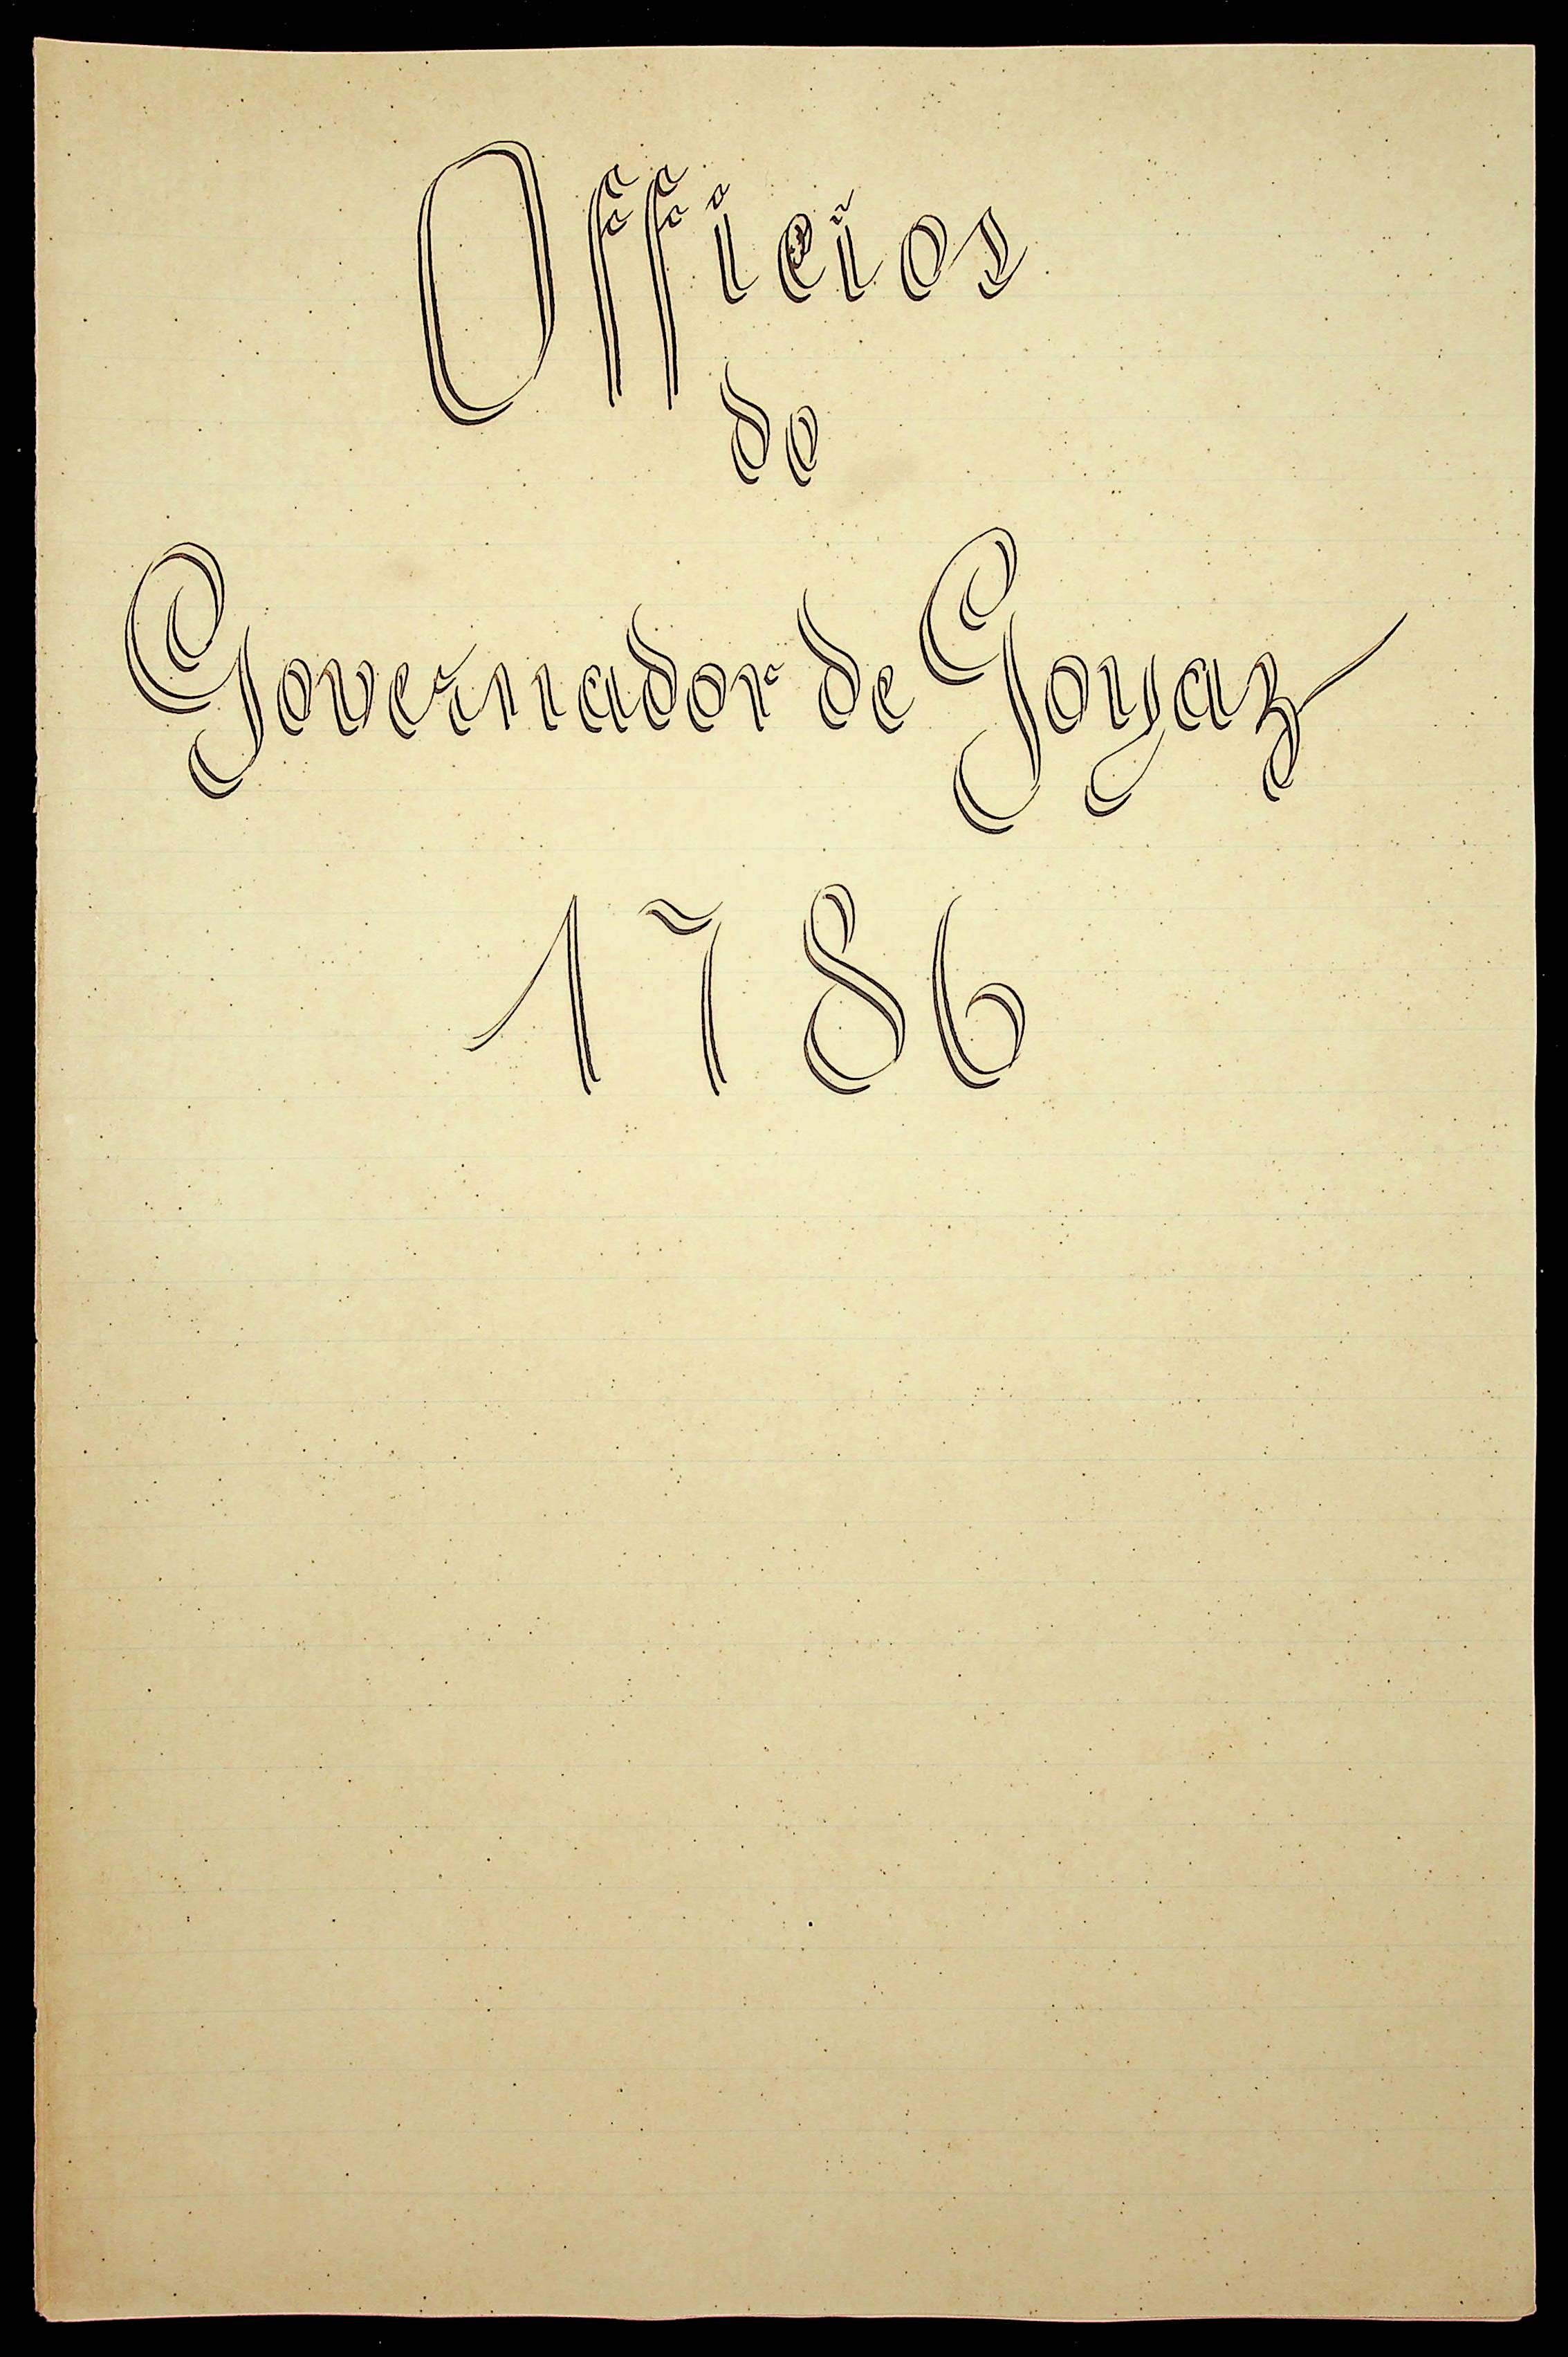 Officios
do
Governador de Goyaz
1786